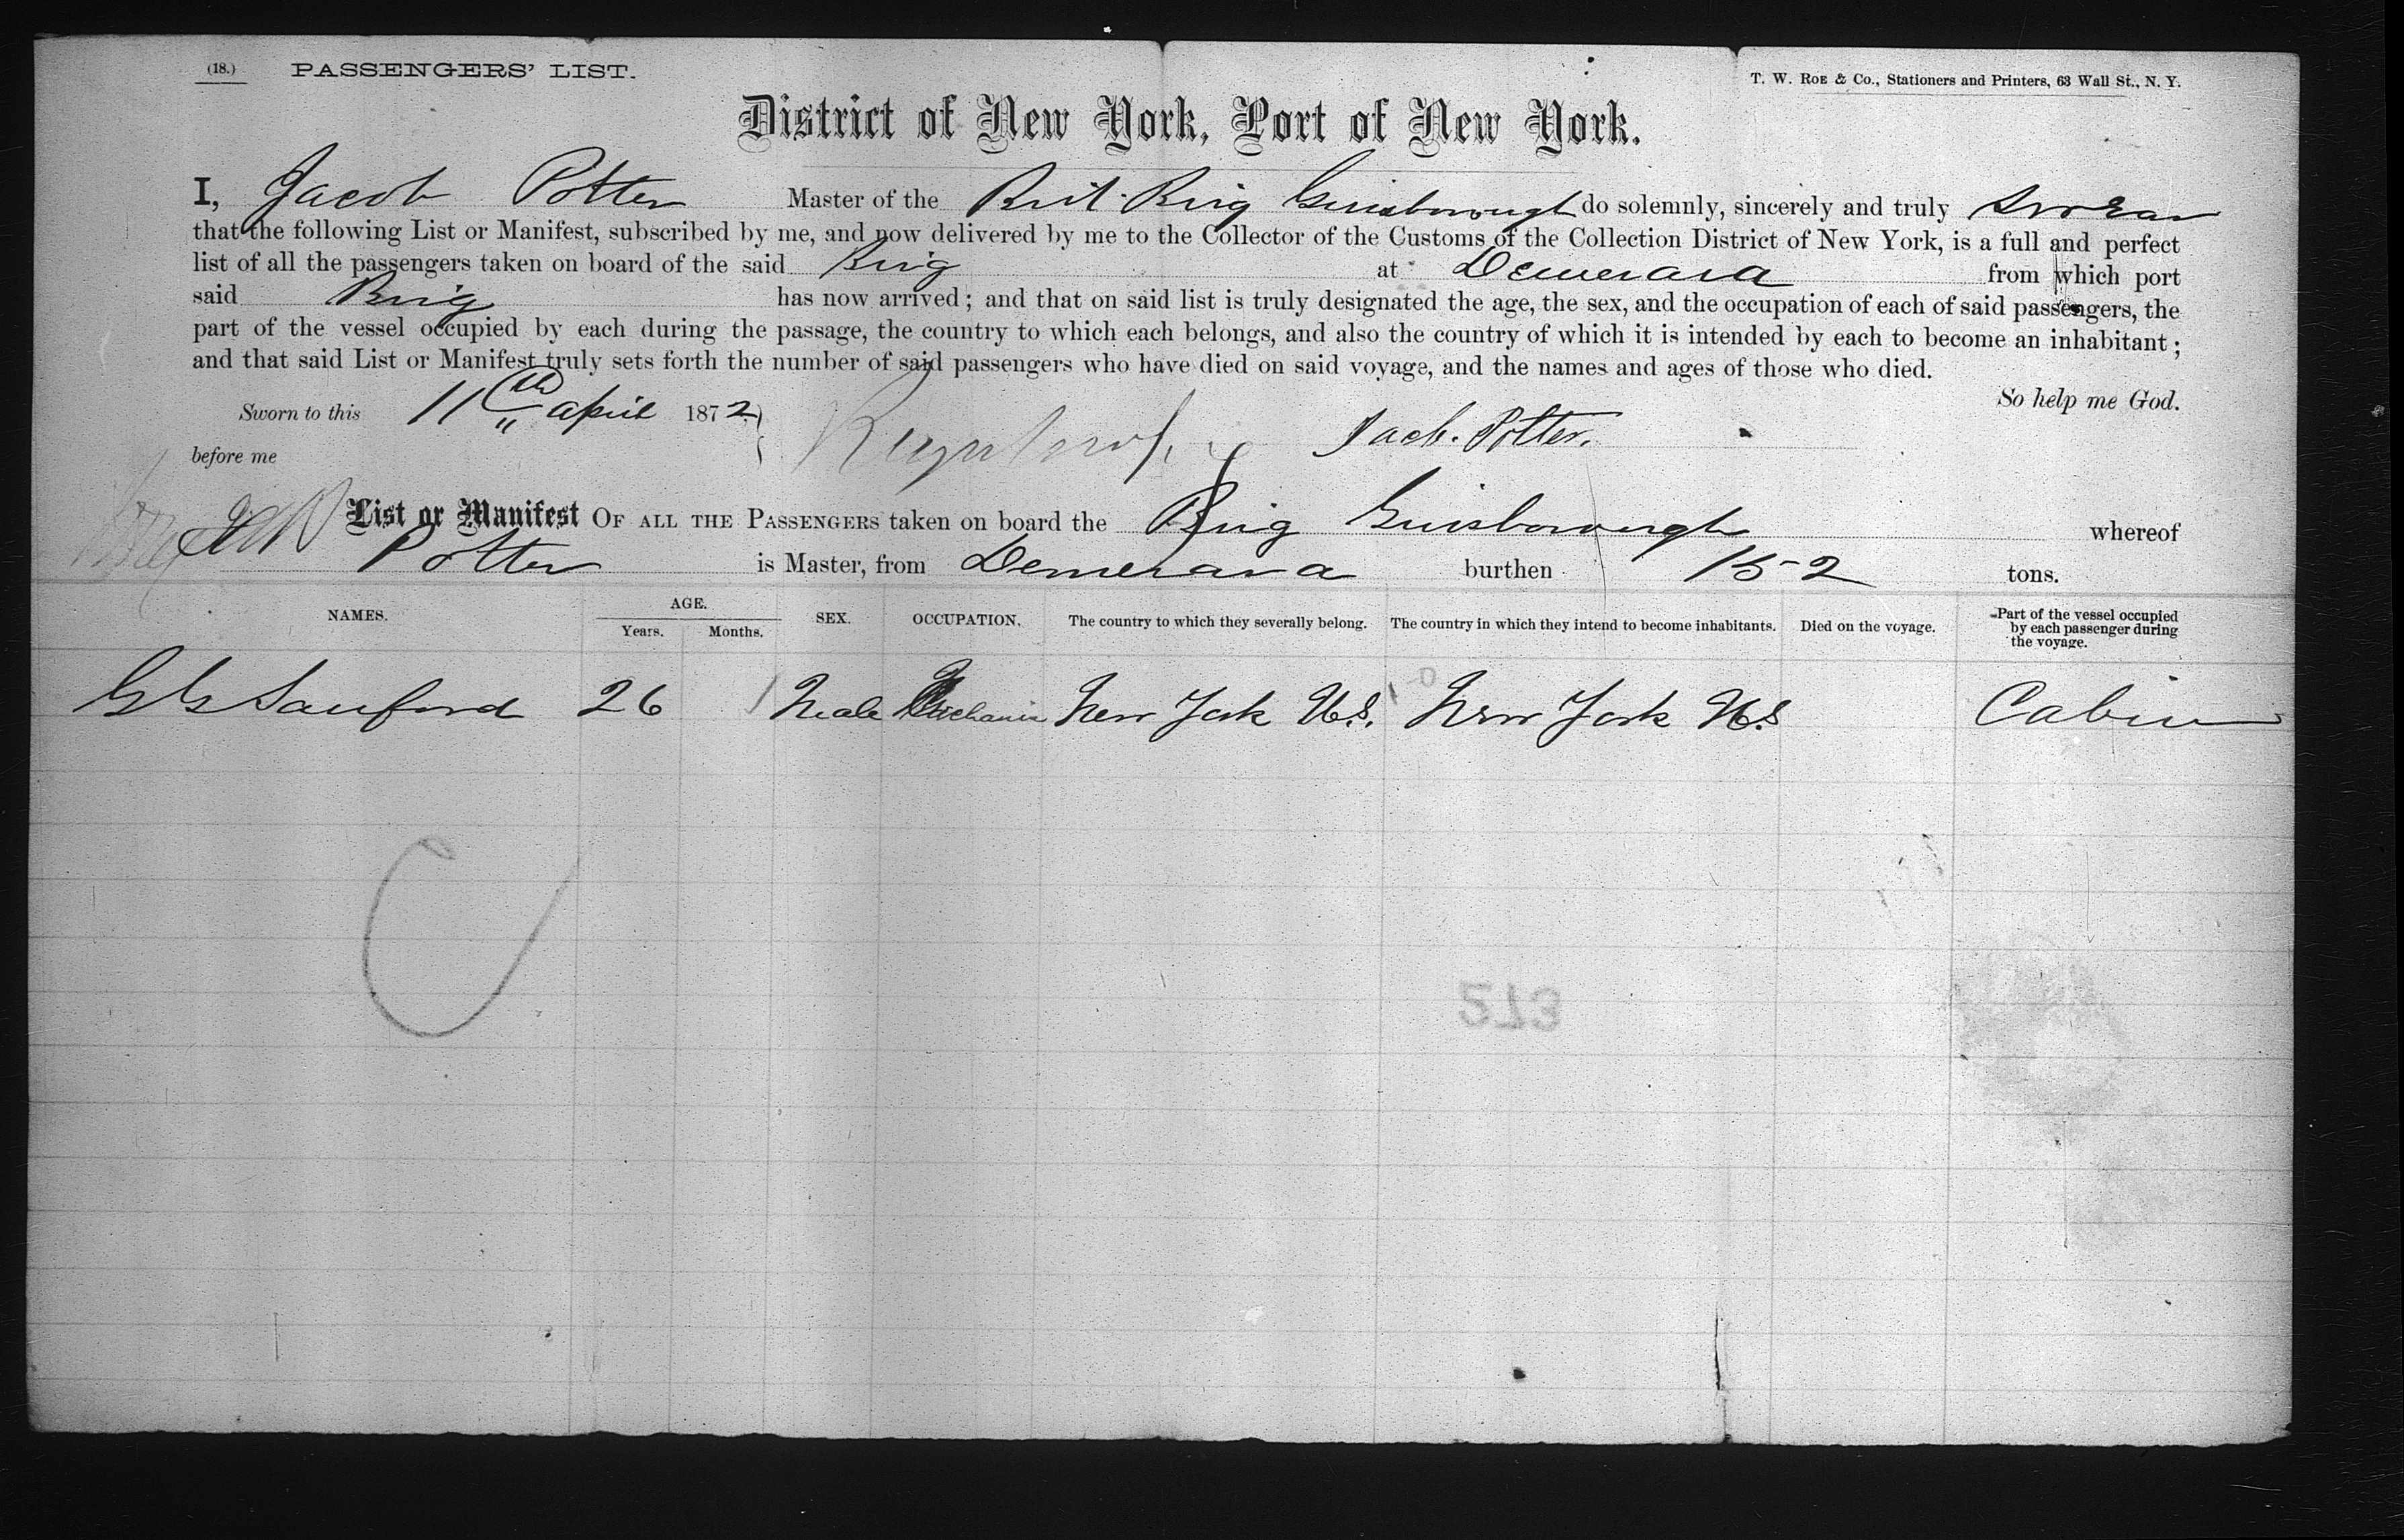 (18.) PASSENGERS' LIST.
T. W. Roe & Co., Stationers and Printers, 63 Wall St., N. Y.
District of New York, Port of New York.
I, Jacob Potter Master of the Brit Brig Guisborough do solemnly, sincerely and truly swear
that the following List or Manifest, subscribed by me, and now delivered by me to the Collector of the Customs of the Collection District of New York, is a full and perfect
list of all the passengers taken on board of the said Brig at Demerara from which port
said Brig has now arrived; and that on said list is truly designated the age, the sex, and the occupation of each of said passengers, the
part of the vessel occupied by each during the passage, the country to which each belongs, and also the country of which it is intended by each to become an inhabitant;
and that said List or Manifest truly sets forth the number of said passengers who have died on said voyage, and the names and ages of those who died.
So help me God.
Sworn to this 11th April 1872
Jacb. Potter.
before me
List or Manifest OF ALL THE PASSENGERS taken on board the Brig Guisborough whereof
Potter is Master, from Demerara burthen 152 tons.
NAMES. AGE. Years. Months. SEX. OCCUPATION. The country to which they severally belong. The country in which they intend to become inhabitants. Died on the voyage. Part of the vessel occupied by each passenger during the voyage.
G G Sanford 26 Male Mechanic New York U.S. New York U.S Cabin